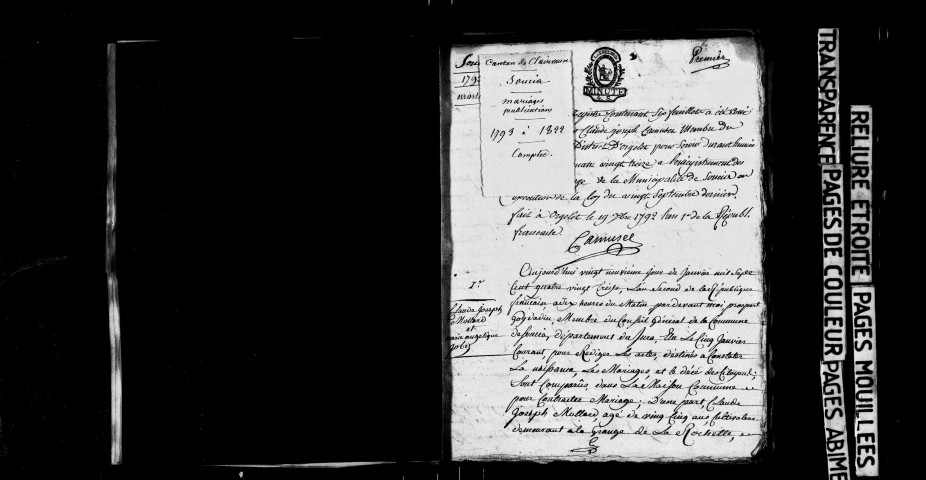 Canton de Clairvaux
Soucia
mariages
publications
1793 à 1822
Complet.
Sou
179
MINUTE
Premier
Registre Contenant Six feuillets a été Coté
Claude Joseph Camuset Membre du
District D'orgelet pour Servir durant l'année
quatre vingt treize a l'enregistrement des
de la Municipalité de Soucia en
exécution de la loy du vingt Septembre dernier.
fait à Orgelet le 19 Xbre 1792 l'an 1er de la Républ.
francaise.
Camuset
1er
Claude Joseph
Mollard
et
marie angelique
Aujourd'hui vingt neuvième jour de Janvier mil Sept
Cent quatre vingt treize, L'an Second de la République
française à dix heures du Matin par devant moi prospert
Membre du Conseil Général de la Commune
de Soucia, département du Jura, Elu le Cinq Janvier
Courant, pour Rediger Les actes, destinés à Constater
La naissance, Les Mariages, et le décé des Citoyens;
Sont Comparûs, dans La Maison Commune
pour Contracter Mariage; D'une part, Claude
Joseph Mollard, agé de vingt Cinq ans, Cultivateur
demeurant à la Grange de La Rochette,
RELIURE ETROITE PAGES MOUILLEES
TRANSPARENCE PAGES DE COULEUR PAGES ABIME